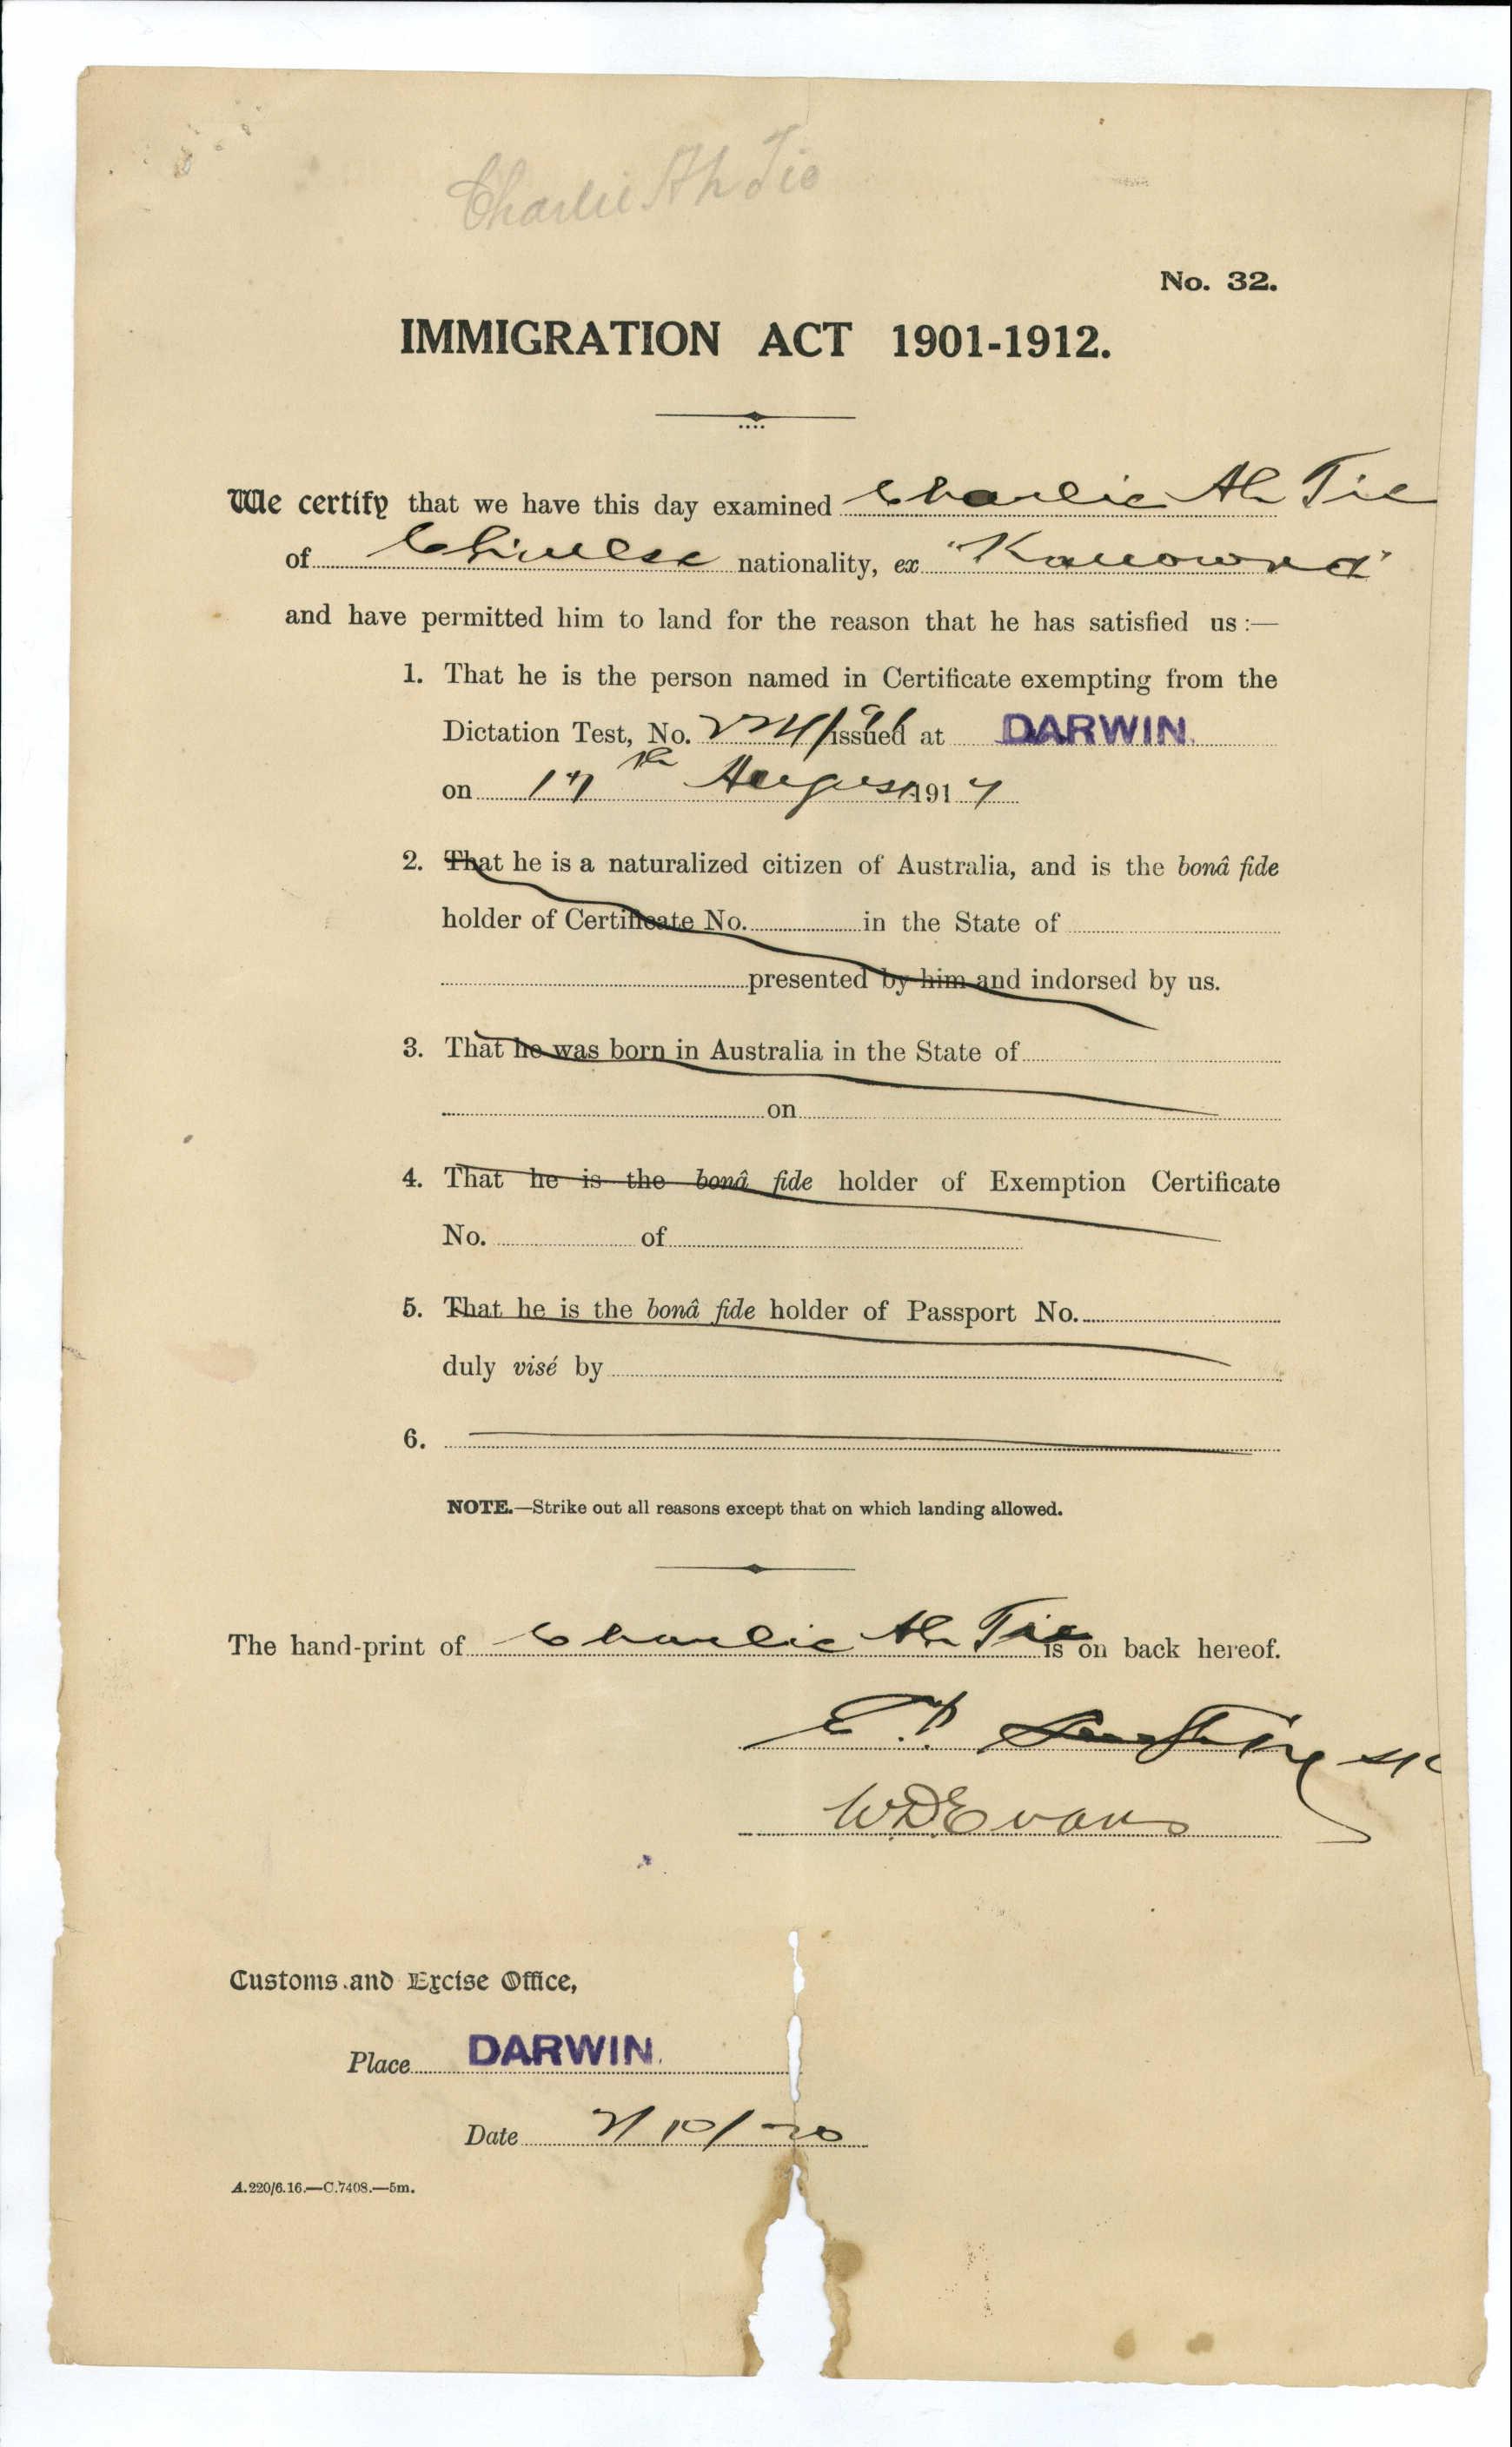 Charlie Ah Tie
No. 32.
IMMIGRATION ACT 1901-1912.
We certify that we have this day examined Charlie Ah Tie
of Chinese nationality, ex "Kanowna"
and have permitted him to land for the reason that he has satisfied us :—
1. That he is the person named in Certificate exempting from the
Dictation Test, No. issued at DARWIN.
on 17th August 1917
2. That he is a naturalized citizen of Australia, and is the bonâ fide
holder of Certificate No. in the State of
presented by him and indorsed by us.
3. That he was born in Australia in the State of
on
4. That he is the bonâ fide holder of Exemption Certificate
No. of
5. That he is the bonâ fide holder of Passport No.
duly visé by
6.
NOTE.—Strike out all reasons except that on which landing allowed.
The hand-print of Charlie Ah Tie is on back hereof.
W.D. Evans
Customs and Excise Office,
Place DARWIN.
Date 2/10/20
A.220/6.16.—C.7408.—5m.